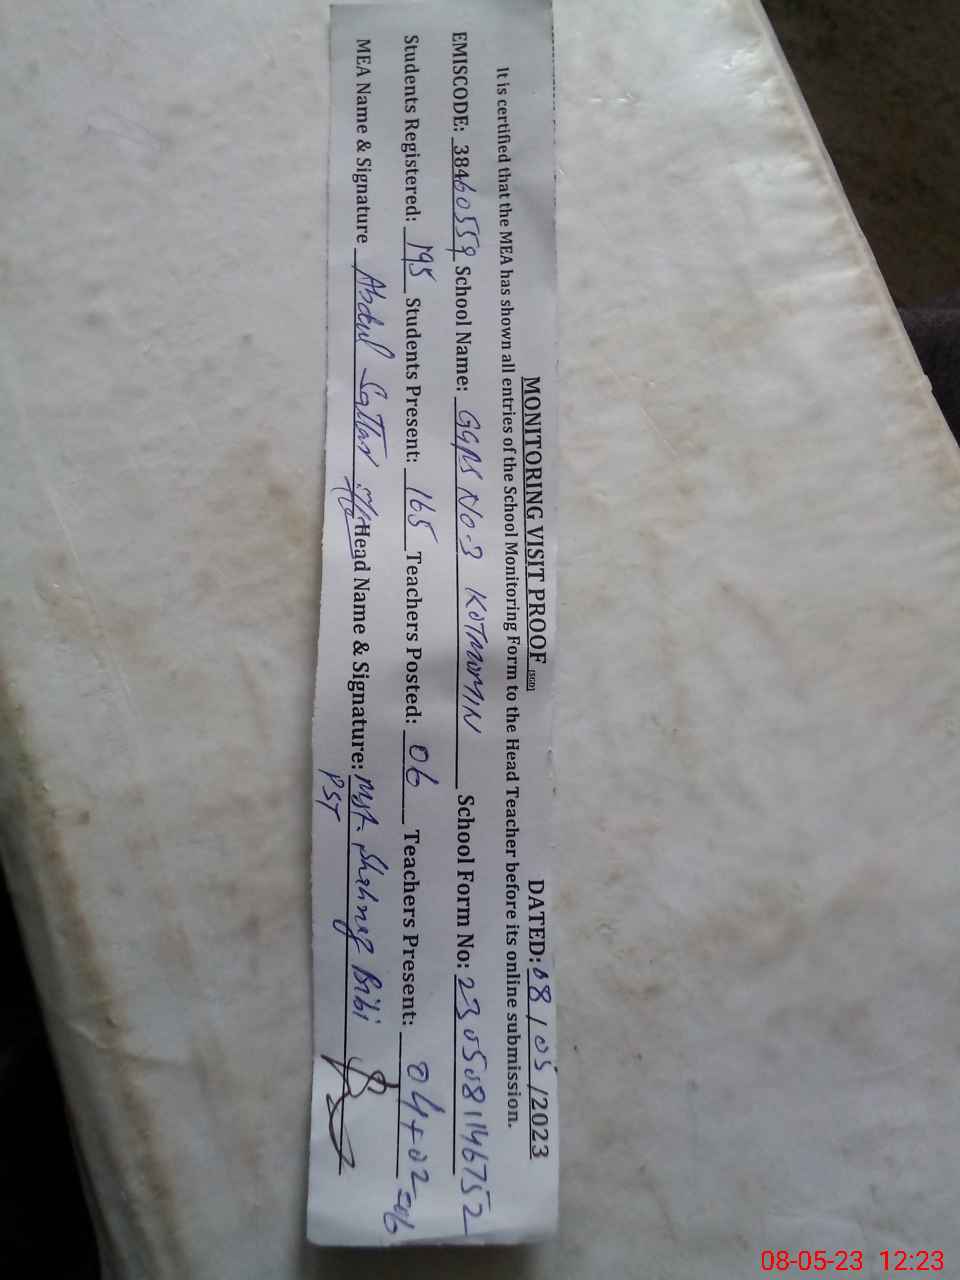 MONITORING VISIT PROOF (SGD) DATED: 08/05/2023
It is certified that the MEA has shown all entries of the School Monitoring Form to the Head Teacher before its online submission.
EMISCODE: 38460559 School Name: GGPS No.3 KOTMOMIN School Form No: 2305081146752
Students Registered: 195 Students Present: 165 Teachers Posted: 06 Teachers Present: 04+02=06
MEA Name & Signature Abdul Sattar Head Name & Signature: Mst. Shahnaz Bibi
PST
08-05-23 12:23